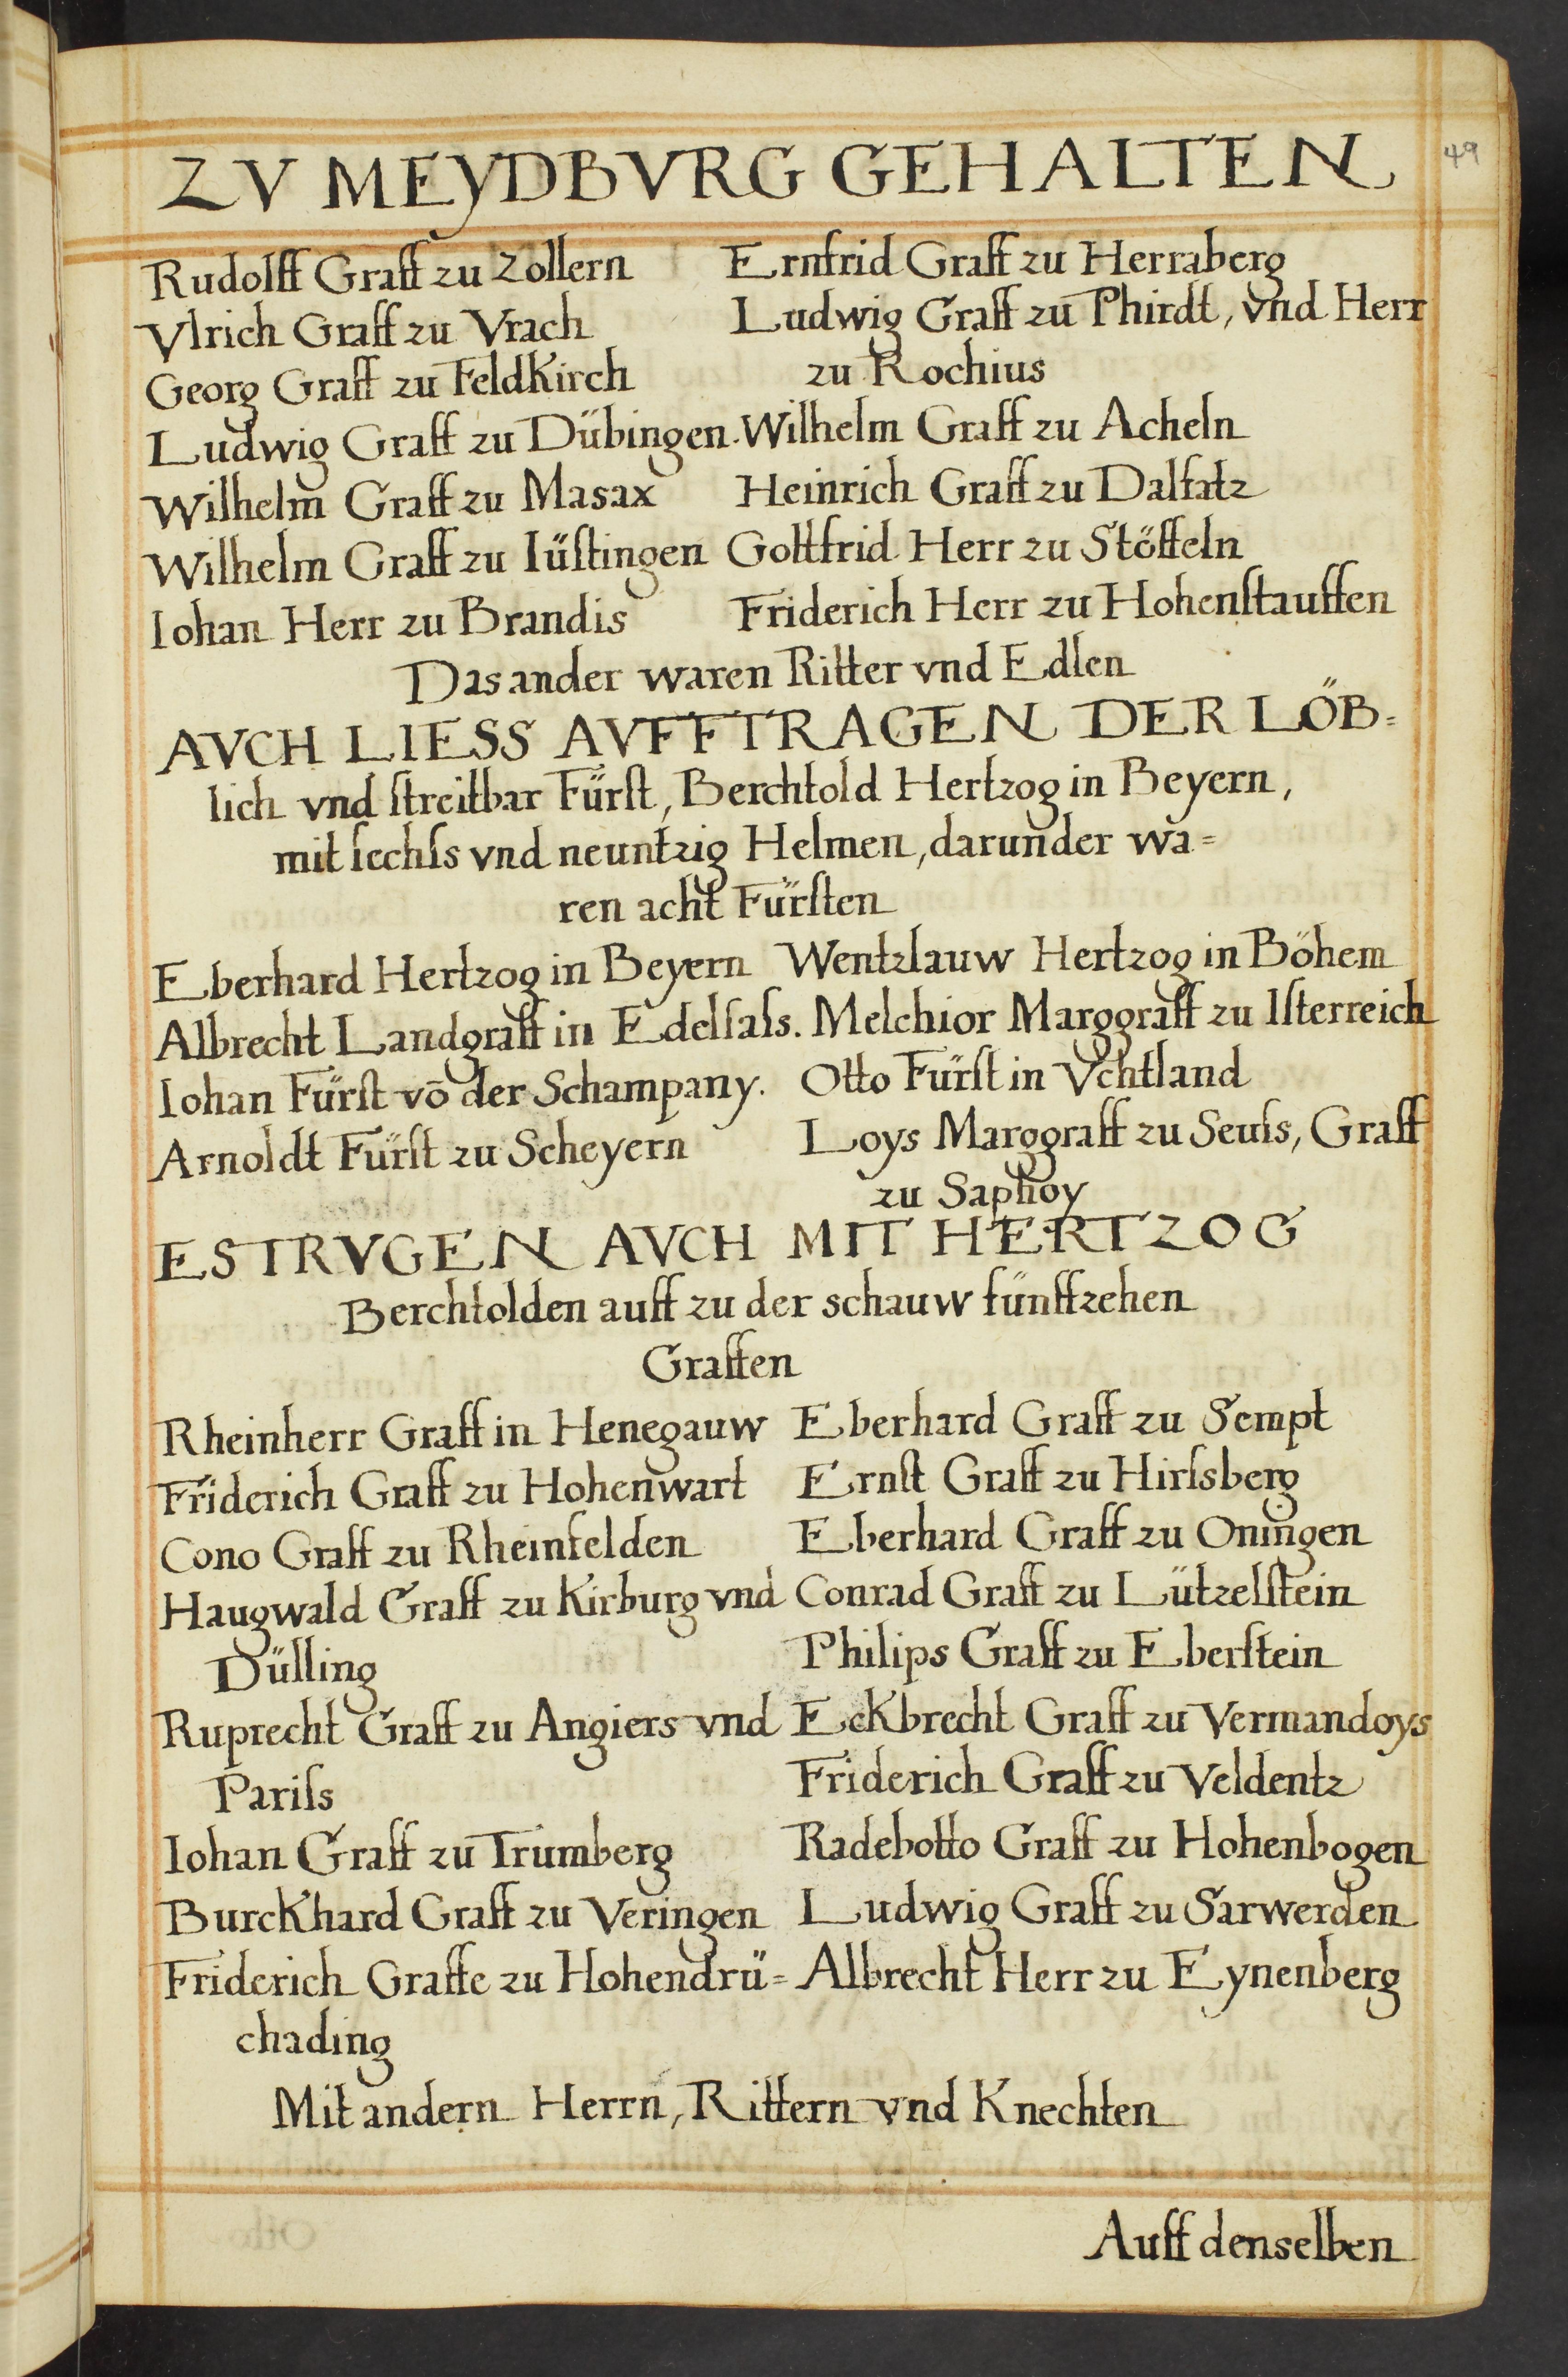 49
ZV MEYDBVRG GEHALTEN
Rudolff Graff zu Zollern
Vlrich Graff zu Vrach
Georg Graff zu Feldkirch
Ludwig Graff zu Dübingen.
Wilhelm Graff zu Masax
Wilhelm Graff zu Iüſtingen
Iohan Herr zu Brandis
Ernfrid Graff zu Herraberg
Ludwig Graff zu Phirdt, vnd Herr
zu Rochius
Wilhelm Graff zu Acheln
Heinrich Graff zu Dalfatz
Gottfrid Herr zu Stöffeln
Friderich Herr zu Hohenſtauffen
Das ander waren Ritter vnd Edlen
AVCH LIESS AVFFTRAGEN DER LÖB=
lich vnd ſtreitbar Fürſt, Berchtold Hertzog in Beyern,
mit ſechſs vnd neuntzig Helmen, darunder wa=
ren acht Fürſten
Eberhard Hertzog in Beyern
Albrecht Landgraff in Edelſaſs.
Iohan Fürſt võ der Schampany.
Arnoldt Fürſt zu Scheyern
Wentzlauw Hertzog in Böhem
Melchior Marggraff zu Iſterreich
Otto Fürſt in Vchtland
Loys Marggraff zu Seuſs, Graff
zu Saphoy
ES TRVGEN AVCH MIT HERTZOG
Berchtolden auff zu der schauw fünffzehen
Graffen
Rheinherr Graff in Henegauw
Friderich Graff zu Hohenwart
Cono Graff zu Rheinfelden
Haugwald Graff zu Kirburg vnd
Dülling
Ruprecht Graff zu Angiers vnd
Pariſs
Iohan Graff zu Trumberg
Burckhard Graff zu Veringen
Friderich Graffe zu Hohendrü=
chading
Eberhard Graff zu Sempt
Ernſt Graff zu Hirſsberg
Eberhard Graff zu Oningen
Conrad Graff zu Lützelſtein
Philips Graff zu Eberſtein
Eckbrecht Graff zu Vermandoys
Friderich Graff zu Veldentz
Radebotto Graff zu Hohenbogen
Ludwig Graff zu Sarwerden
Albrecht Herr zu Eynenberg
Mit andern Herrn, Rittern vnd Knechten
Auff denselben